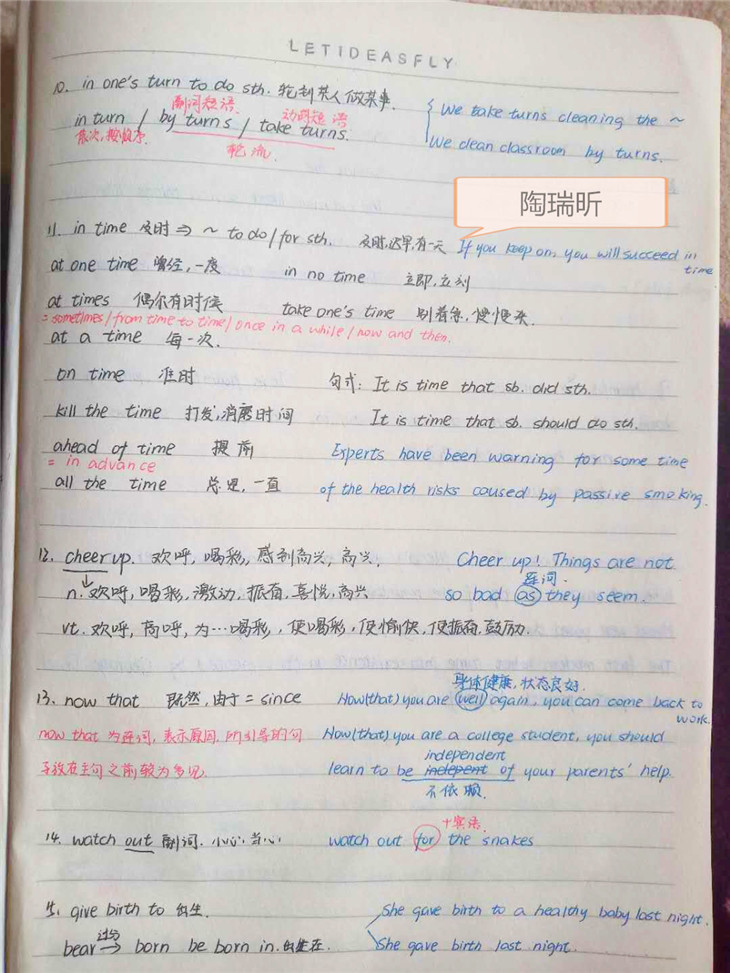 LETIDEASFLY
10. in one's turn to do sth. 轮到某人做某事.
副词短语 动词短语
in turn / by turns / take turns.
依次, 按顺序. 轮流
{ We take turns cleaning the ~
We clean classroom by turns.
陶瑞昕
11. in time 及时 ⇒ ~ to do / for sth. 及时, 迟早, 有一天 If you keep on, you will succeed in time
at one time 曾经, 一度 in no time 立即, 立刻
at times 偶尔有时候 take one's time 别着急, 慢慢来.
= sometimes / from time to time / once in a while / now and then.
at a time 每一次.
on time 准时 句式: It is time that sb. did sth.
kill the time 打发, 消磨时间 It is time that sb. should do sth.
ahead of time 提前 Experts have been warning for some time
= in advance
all the time 总是, 一直 of the health risks caused by passive smoking.
12. cheer up. 欢呼, 喝彩, 感到高兴, 高兴, Cheer up! Things are not
连词.
n. 欢呼, 喝彩, 激动, 振奋, 喜悦, 高兴 so bad as they seem.
vt. 欢呼, 高呼, 为…喝彩, 使喝彩, 使愉快, 使振奋, 鼓励.
身体健康, 状态良好.
13. now that 既然, 由于 = since Now(that) you are well again, you can come back to work.
now that 为连词, 表示原因, 所引导的句 Now(that) you are a college student, you should
independent
子放在主句之前较为多见. learn to be indepent of your parents' help.
不依赖.
+宾语
14. watch out 副词. 小心, 当心 watch out for the snakes
15. give birth to 出生. She gave birth to a healthy baby last night.
过分
bear → born be born in. 出生在. She gave birth last night.